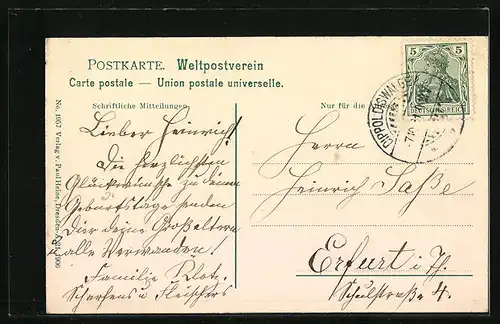 POSTKARTE. Weltpostverein
Carte postale — Union postale universelle.
Schriftliche Mitteilungen
Nur für die
No. 1957 Verlag v. Paul Heine, Dresden-A. 1906
5 5
DEUTSCHES REICH
DIPPOLDISWALDE
Lieber Heinrich!
Die herzlichsten
Glückwünsche zu deinem
Geburtstage senden
Dir deine Großeltern
u. alle Verwandten!
Familie Klot.
Scherfens u. Fleischers
Herrn
Heinrich Saße
Erfurt i. Th.
Schulstraße 4.